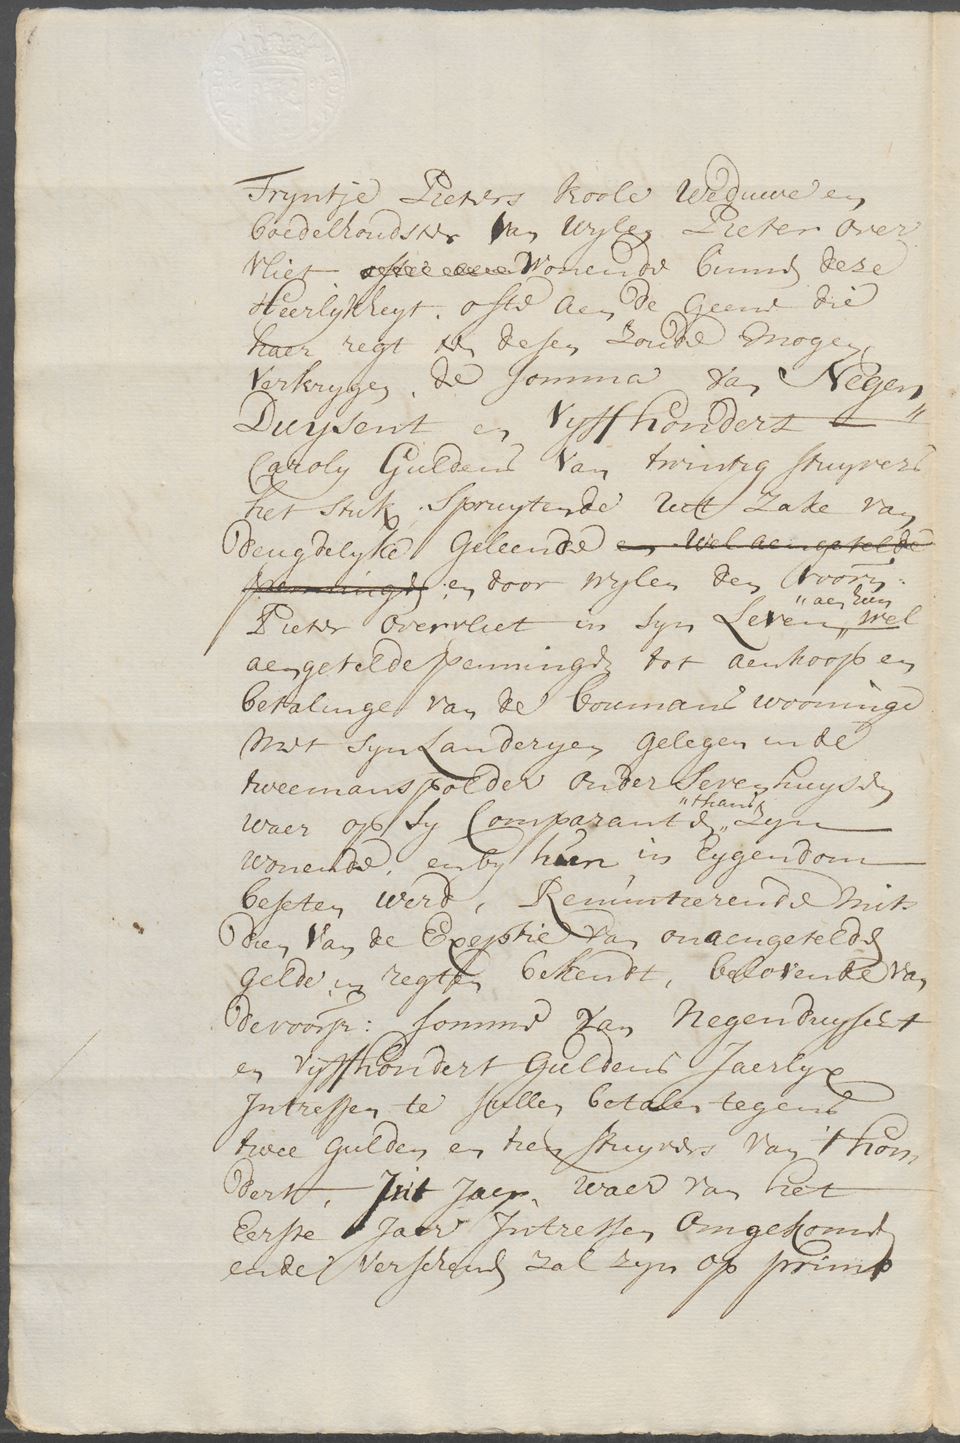 Tryntje Pieters Koole Weduwe en
boedelhoudster van wylen Pieter over
vliet wonende binne deze
Heerlykheyt. ofte aen de geene die
haer regt in desen zoude mogen
verkrygen, de somma van Negen
Duysent en Vyffhondert
Caroly Guldens van twintig stuyvers
het stuk, spruytende uut zake van
deugdelyke geleende en wel aengetelde
penningen en door wylen den voorn:
"aen hun
Pieter overvliet in syn Leven, wel
aengetelde penningen tot aenkoop en
betalinge van de boumans wooninge
met syn Landeryen gelegen in de
tweemanspolder onder Sevenhuysen
"thans
waer op sy Comparanten zyn
wonende, en by hun in Eygendom
beseten werd, Renuntierende mits
dien van de Exeptie van onaengetelde
gelde in regten bekendt, belovende van
de voorsz: somme van Negenduysent
en vyffhondert Guldens Jaerlyx
Intressen te sullen betalen tegens
twee gulden en tien stuyvers van 't hon
dert, Jnt Jaer, waer van het
Eerste Jaer Intressen omgekomen
ende verschenen zal zyn op primo